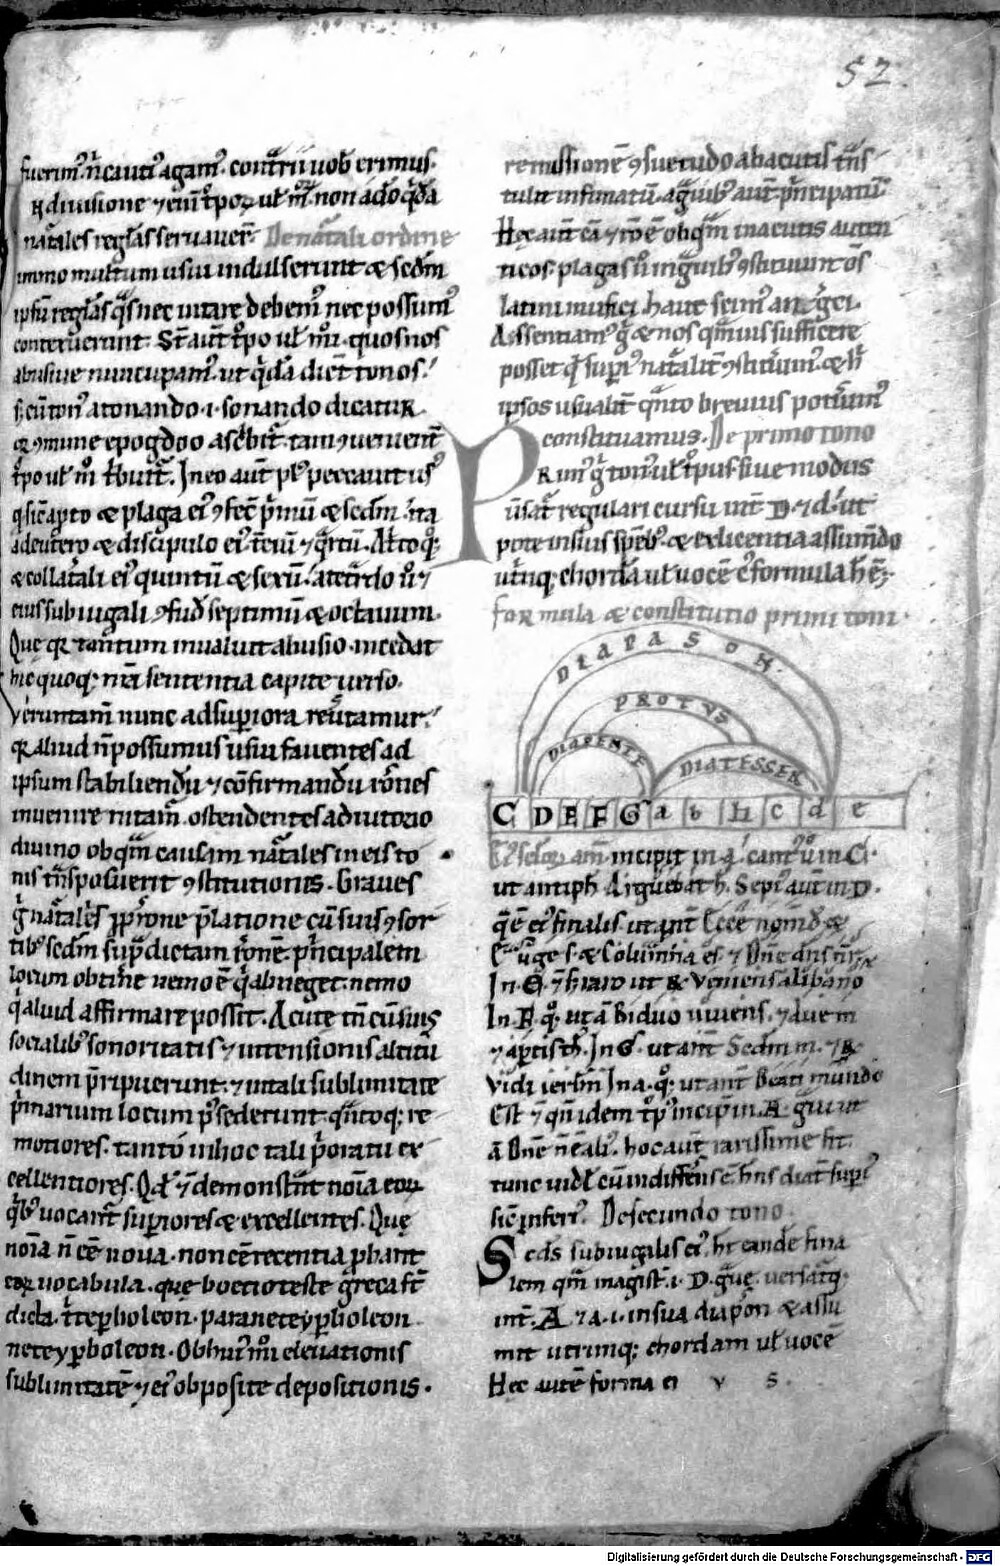 52.
fuerim᷒ n̄ cauti agam᷒. contrarii vob erimus.
R diuisione ⁊ eni tpor ul mor non adeo qda
nat̄ales reglas seruauer̄. De nat̄ali ordine
immo multum usui indulserunt & sedm
ipsū reglas qs nec uitare debem᷒ nec possum᷒
conteruerunt. St aut tropo ul modi. quos nos
abusiue nuncupam᷒. ut qda dicit tonos.
s; cu ton᷒ a tonando .i. sonando dicatur
qr 9mune epogdoo ascbit. tam 9uenient
tropo ul mo tbuit. In eo aut pl᷒ peccauit us᷒
q sic apto & plaga ei᷒ 9fec p̄mū & sedm. ita
a deutero & discipulo ei᷒ t̄ciū ⁊ qrtū. A trito q;
& collat̄ali ei᷒ quintū & sextū. a tetrdo u᷒ ⁊
eius subiugali 9fud septimū & octauum.
Quę qr tantum inualuit abusio. incedat
hic quoq; nr̄i sententia capite uerso.
Veruntam nunc ad superiora reutamur.
qr aliud n̄ possumus usui fauentes ad
ipsum stabiliendū ⁊ confirmandū rōnes
inuenire nitam᷒. ostendentes adiutorio
diuino ob qm causam nat̄ales in eis to
nis tnsposuerit 9stitutionis. Graues
g nat̄ales ꝓprone p̄latione cū suis 9sor
tib᷒ sedm sup̄dictam rōnē. p̄ncipalem
locum obtinē nemo ē q abneget. nemo
q aliud affirmare possit. Acute tn cū suis
socialib᷒ sonoritatis ⁊ intensionis altitu
dinem p̄ripuerunt. ⁊ uitali sublimitate
p̄marium locum p̄sederunt. qntoq; re
motiores. tanto in hoc tali p̄oratu ex
cellentiores. Qd ⁊ demonstnt noīa eor
qb᷒ uocant superiores & excellentes. Quę
noīa n̄ cē noua. non cē recentia ꝓbant
eor uocabula. quę boecio teste greca st
dicta. t̄te yperboleon. paranete yperboleon.
nete yperboleon. Ob hui᷒ mōi eleuationis
sublimitatē ⁊ ei᷒ obposite depositionis.
remissionē 9suetudo ab acutis tns
tulit infimatū. a guib᷒ aut p̄ncipatū.
Hęc aut cā ⁊ rō ē ob qm in acutis auten
ticos. plagas u in guib᷒ 9stituunt os
latini musici. haut scim᷒ an greci.
Assentiam᷒ g & nos qmuis sufficere
posset q sup̄i᷒ nat̄alit 9stituim᷒. & h
ipsos usualit qnto breuius poterim᷒
constituamus. De primo tono
Prim᷒ g ton᷒ ul trop᷒ siue modus
uersat regulari cursu int D. ⁊ d. ut
pote in suis speb᷒. & ex licentia assumdo
utrinq; chordā ul uocē c̄ formula h ē;
formula & constitutio primi toni.
DIAPASON.
PROTVS
DIAPENTE
DIATESSER
C D E F G a b h c d e
incipit in a. cant u in C.
ut antiph Arguebat h. Sepi᷒ aut in D.
q ē ei᷒ finalis. ut ant Ecce nomē dn̄i &
Euge s. & Columna es. ⁊ Dne dns nr̄. &
In E. ⁊ h raro ut R Veniens a libano
In F q; ut a Biduo uiuens. ⁊
⁊ apertis th. In G. ut ant Sedm m. ⁊ R
Vidi ierlm In a. q; ut ant Beati mundo
Est ⁊ qn idem trop᷒ incip in A. gui ut
a Dne n̄ e alius. hoc aut rarissime fit.
tunc uidl cū indifferns ē. hns diat superi᷒
sic inferi᷒. De secundo tono.
Scds subiugalis ei᷒. ht eandē fina
lem qm magist .i. D. guē. uersatq;
int A. ⁊ a .i. in sua diapon & assu
mit utrinq; chordam ul uocē
Hęc autē forma ei v s.
Digitalisierung gefördert durch die Deutsche Forschungsgemeinschaft - DFG